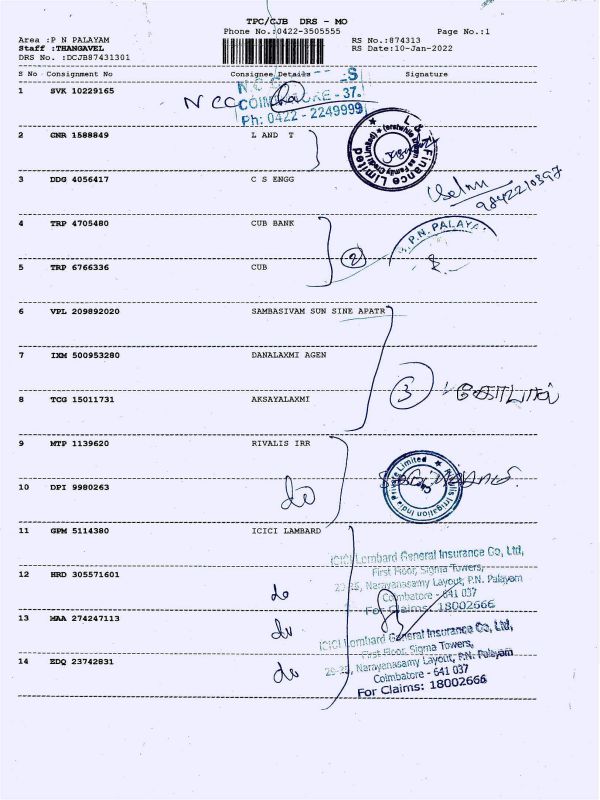 TPC/CJB DRS - MO
Phone No.:0422-3505555 Page No.:1
Area :P N PALAYAM RS No.:874313
Staff :THANGAVEL RS Date:10-Jan-2022
DRS No. :DCJB87431301
S No Consignment No Consignee Details Signature
1 SVK 10229165
NCC COIMBATORE - 37.
Ph: 0422 - 2249999
2 GNR 1588849 L AND T
L & T Finance Limited (erstwhile known as Family Credit Limited)
3 DDG 4056417 C S ENGG
9842210397
4 TRP 4705480 CUB BANK
P.N. PALAYA
2
5 TRP 6766336 CUB
6 VPL 209892020 SAMBASIVAM SUN SINE APATR
7 IXM 500953280 DANALAXMI AGEN
3
8 TCG 15011731 AKSAYALAXMI
9 MTP 1139620 RIVALIS IRR
Rivulis Irrigation India Private Limited
10 DPI 9980263 do
11 GPM 5114380 ICICI LAMBARD
ICICI Lombard General Insurance Co, Ltd,
First Floor, Sigma Towers,
12 HRD 305571601 do
29-25, Narayanasamy Layout, P.N. Palayam
Coimbatore - 641 037
For Claims: 18002666
13 MAA 274247113 do
ICICI Lombard General Insurance Co, Ltd,
First Floor, Sigma Towers,
14 EDQ 23742831 do
29-25, Narayanasamy Layout, P.N. Palayam
Coimbatore - 641 037
For Claims: 18002666